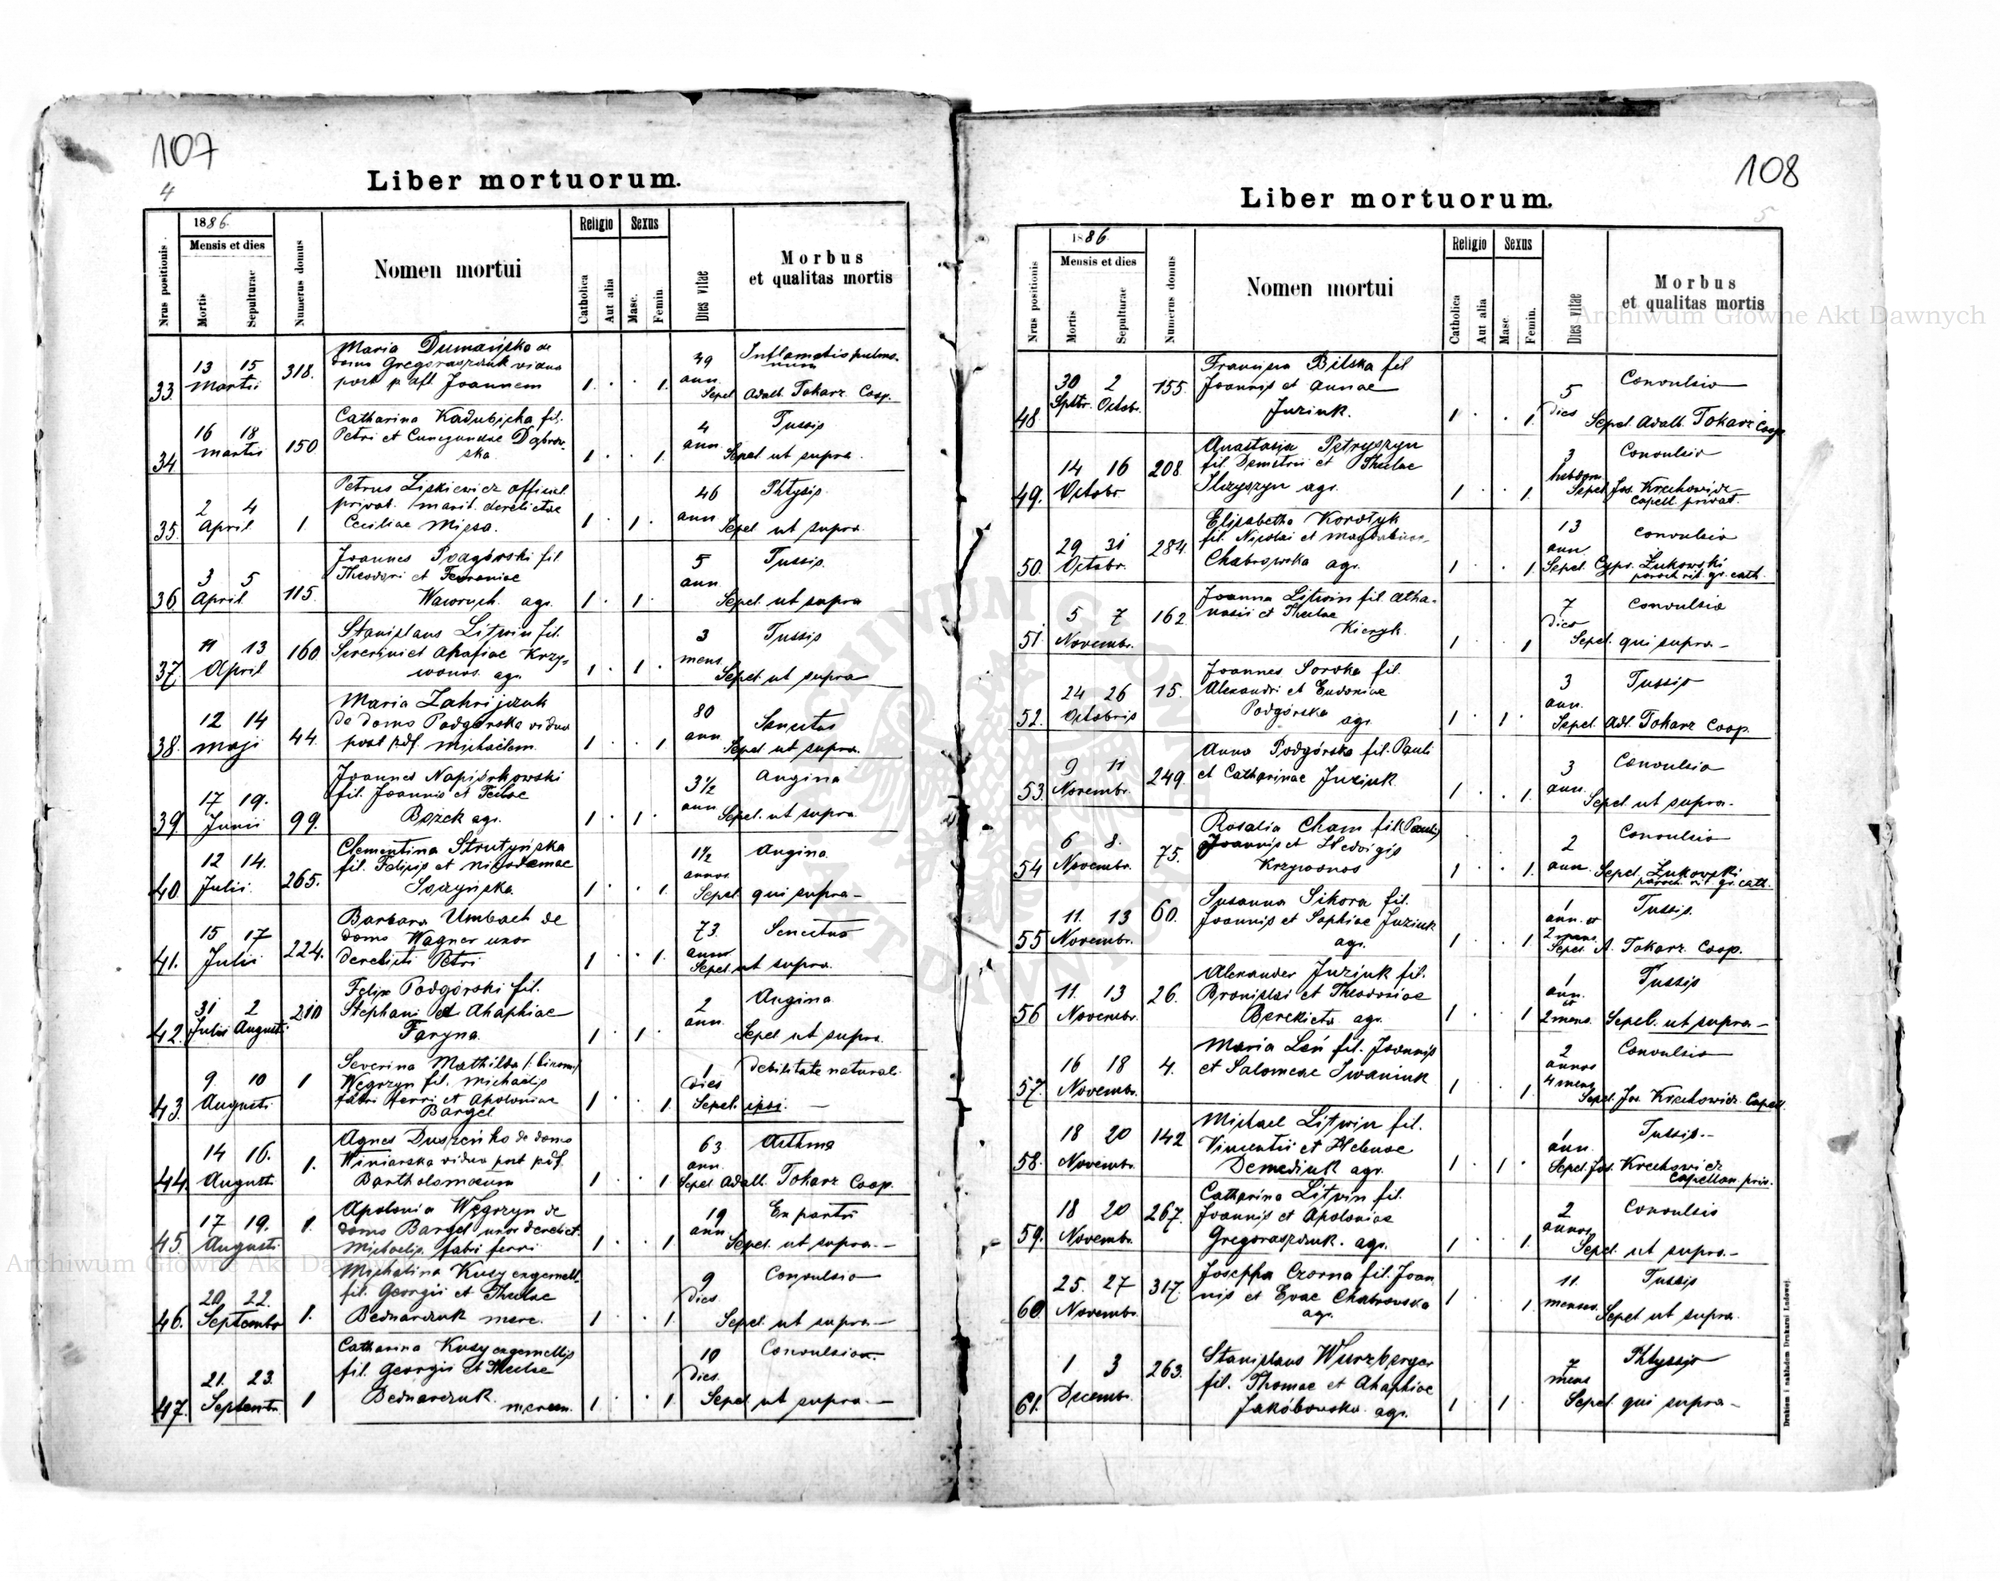 107
4
Liber mortuorum.
Nrus positionis
1886.
Mensis et dies
Mortis
Sepulturae
Numerus domus
Nomen mortui
Religio
Catholica
Aut alia
Sexus
Masc.
Femin
Dies vitae
Morbus
et qualitas mortis
33. 13 15 Martii 318. Maria Dumańska de
domo Gregoraszczuk vidua
post p. aft Joannem 1 . . 1. 39 ann. Inflamatis pulmo-
num
Sepel. Adalb. Tokarz Coop.
34 16 18 Martii 150 Catharina Kadubicka fil.
Petri et Cunegundae Dąbrow-
ska 1 . . 1. 4 ann. Tussis
Sepel. ut supra.
35. 2 4 April 1 Petrus Liskiewicz official.
privat. marit. derelictae
Ceciliae Migsa. 1 . 1 . 46 ann. Phtysis.
Sepel ut supra
36 3 5 April 115. Joannes Podgórski fil
Theodori et Fevroniae
Waworych. agr. 1 . 1 . 5 ann. Tussis.
Sepel. ut supra
37. 11 13 April 160. Stanislaus Litwin fil.
Severini et Ahafiae Krzy-
wonos. agr. 1 . 1 . 3 mens. Tussis
Sepel. ut supra
38. 12 14 Maji 44. Maria Zahrijczuk
de domo Podgórska vidua
post pdf. Michaëlem. 1 . . 1 80 ann Senectus
Sepel ut supra.
39. 17 19. Junii 99. Joannes Napiórkowski
fil. Joannis et Teclae
Bozek agr. 1 . 1 . 3 1/2 ann Angina
Sepel. ut supra.
40. 12 14. Julii. 265. Clementina Strutyńska
fil. Felixis et Nicodemae
Soczyńska. 1 . . 1. 1 1/2 annos. Angina.
Sepel qui supra-
41. 15 17 Julii 224. Barbara Umbach de
domo Wagner uxor
derelicti Petri 1 . . 1. 73. annos Senectus
Sepel ut supra.
42. 31 2 Julii Augusti 210 Felix Podgórski fil.
Stephani et Ahaphiae
Faryna. 1 . 1 . 2 ann. Angina
Sepel ut supra.
43. 9. 10 Augusti 1 Severina Mathilda (: binom:)
Węgrzyn fil. Michaelis
fabri ferri et Apoloniae
Bargel 1 . . 1. 1 dies Debilitate natural.
Sepel. ipsi. —
44. 14 16. Augusti 1. Agnes Duszeńko de domo
Winiarska vidua post pdf.
Bartholomaeum 1 . . 1 63 ann. Asthma
Sepel Adalb. Tokarz Coop.
45. 17 19. Augusti 1. Apolonia Węgrzyn de
domo Bargel uxor derelict.
Michaelis. fabri ferri 1 . . 1. 19 ann Ex partu
Sepel. ut supra. —
46. 20. 22. Septembr 1. Michalina Kusy exgemell.
fil. Georgii et Theclae
Bednarczuk merc. 1 . . 1. 9 dies. Convulsio
Sepel. ut supra —
47. 21. 23. Septembr 1 Catharina Kusy exgemellis
fil. Georgii et Theclae
Bednarczuk. mercen. 1 . . 1. 10 dies. Convulsion.
Sepel. ut supra. —
108
5
Liber mortuorum.
Nrus positionis
1886.
Mensis et dies
Mortis
Sepulturae
Numerus domus
Nomen mortui
Religio
Catholica
Aut alia
Sexus
Masc.
Femin.
Dies vitae
Morbus
et qualitas mortis
48. 30 2 Septbr. Octobr. 155. Francisca Bilska fil
Joannis et Annae
Juziuk. 1 . . 1. 5 dies Convulsio
Sepel. Adalb. Tokarz Coop.
49. 14 16 Octobr 208. Anastasia Petryszyn
fil. Demetrii et Theclae
Slizyszyn agr. 1 . . 1 3 hebdom. Convulsio
Sepel. Jos. Krechowicz
Capell. privat.
50. 29 31 Octobr. 284. Elisabetha Korołyk
fil. Nicolai et Magdalenae
Chabrowska agr. 1 . . 1. 13 ann. Convulsio
Sepel. Cypr. Łukowski
paroch. rit. gr. cath.
51. 5 7 Novembr. 162. Joanna Litwin fil. Atha-
nasii et Theclae
Kieryk. 1 . . 1 7 dies Convulsio
Sepel. qui supra -
52. 24 26 Octobris 15. Joannes Soroka fil.
Alexandri et Eudoxiae
Podgórska agr. 1 . 1 . 3 ann. Tussis
Sepel. Adl. Tokarz Coop.
53. 9 11 Novembr. 249. Anna Podgórska fil. Pauli
et Catharinae Juziuk. 1 . . 1. 3 ann. Convulsio
Sepel ut supra.
54 6 8. Novembr. 75. Rosalia Cham fil (Pauli)
Joannis et Hedvigis
Krzywonos 1 . . 1. 2 ann. Convulsio
Sepel. Łukowski
paroch. rit. gr. cath.
55 11. 13 Novembr. 60. Susanna Sikora fil.
Joannis et Sophiae Juziuk
agr. 1 . . 1 1 ann. et
2 mens. Tussis.
Sepel. A. Tokarz. Coop.
56 11. 13 Novembr. 26. Alexander Juziuk fil.
Bronislai et Theodosiae
Berekieta agr. 1 . . 1 1 ann. et
2 mens. Tussis
Sepel. ut supra —
57. 16 18 Novembr. 4. Maria Leń fil. Joannis
et Salomeae Iwaniuk 1 . . 1 2 annos
4 mens. Convulsio
Sepel. Jos. Krechowicz. Capell.
58. 18 20 Novembr. 142 Michael Litwin fil.
Vincentii et Helenae
Demediuk agr. 1 . 1 . 1 ann. Tussis.-
Sepel. Jos. Krechowicz
Capellan priv.
59. 18 20 Novembr. 267. Catharina Litwin fil.
Joannis et Apoloniae
Gregoraszczuk. agr. 1 . . 1. 2 annos Convulsio
Sepel. ut supra. —
60. 25. 27 Novembr. 317. Josepha Czorna fil. Joan-
nis et Evae Chabrovska
agr. 1 . . 1. 11. menses. Tussis
Sepel ut supra.
61. 1 3 Decembr. 263. Stanislaus Wurzberger
fil. Thomae et Ahaphiae
Jakóbowska. agr. 1 . 1 . 7 mens Phtyssis
Sepel. qui supra —
Drukiem i nakładem Drukarni Ludowej.
Archiwum Główne Akt Dawnych
Archiwum Główne Akt Dawnych
ARCHIWUM GŁÓWNE AKT DAWNYCH